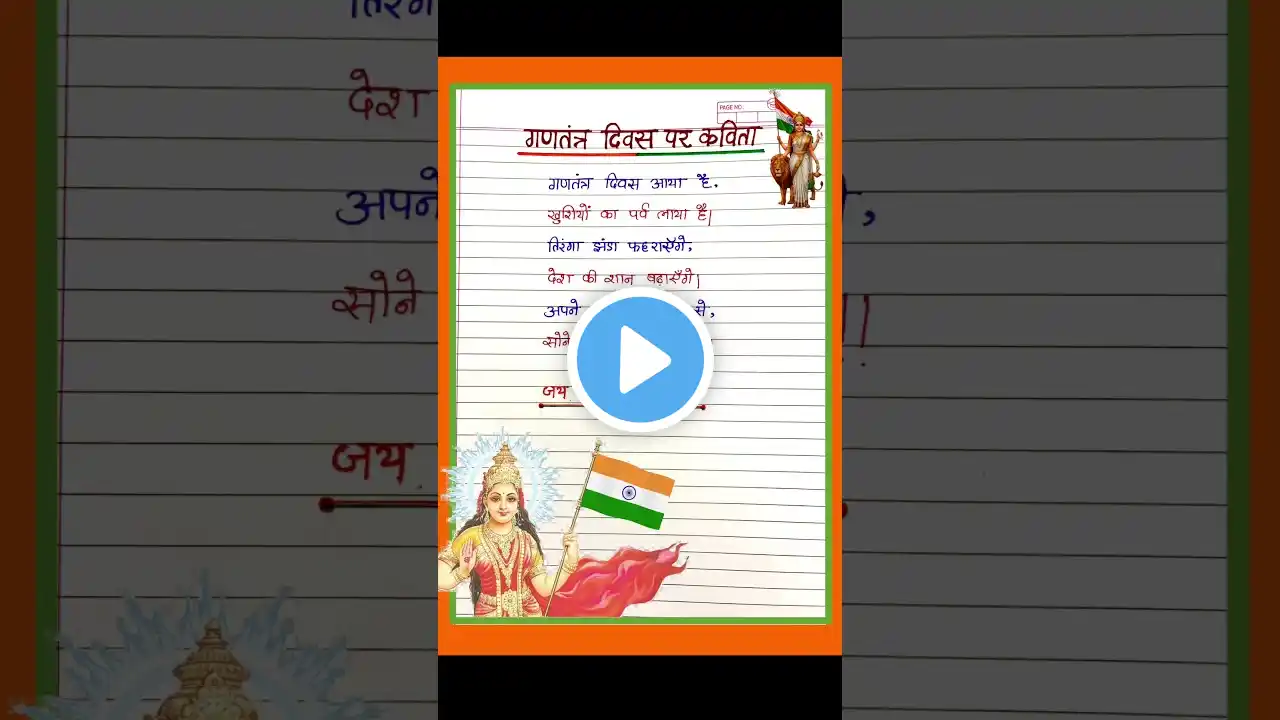 PAGE NO.
गणतंत्र दिवस पर कविता
गणतंत्र दिवस आया है,
खुशियों का पर्व लाया है।
तिरंगा झंडा फहराएँगे,
देश की शान बढ़ाएँगे।
अपने से,
सोने
जय
तिरंग
देश
अपने ,
सोने ।
जय